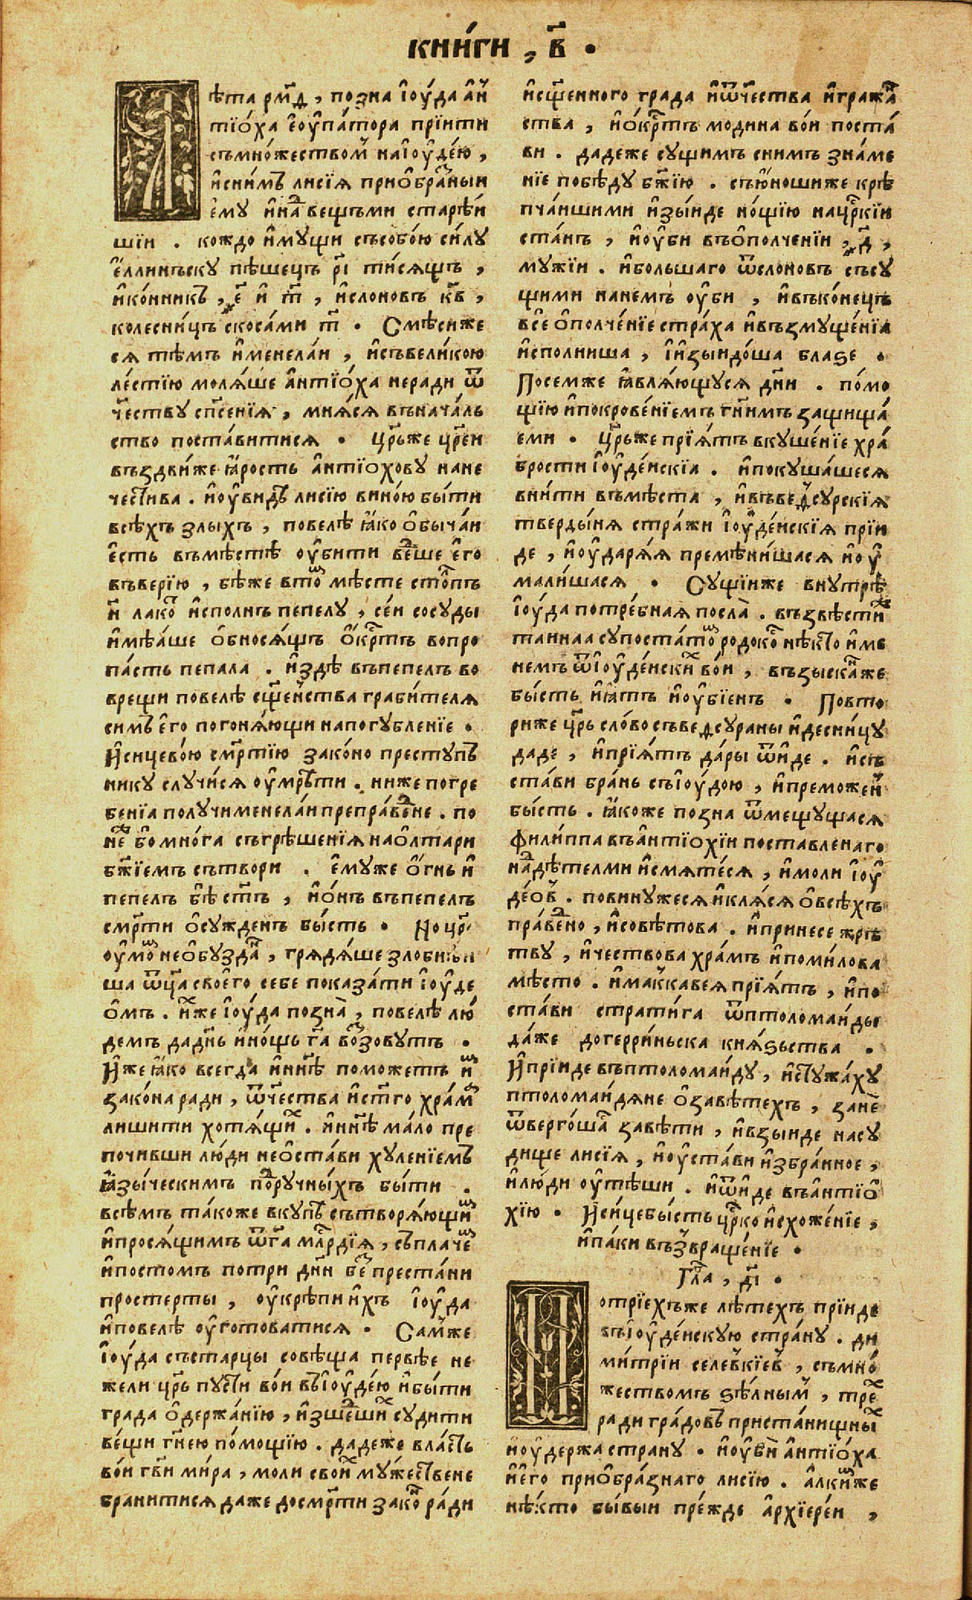 КНИ́ГИ , в҃ .
Лѣта рм҃д , позна і҆оу́да а҆н
тїо́ха є҆оупа́тора прїити
съмно́жеством̾ на і҆оуде́ю ,
и҆сни́мъ лисїѧ приѻ҆бра́ныи
є҆му и҆на̾ вещъми старѣ́и
шїи . кождо и҆мущи съсобо́ю си́лу
є҆́ллинъску пѣшецъ р҃і ти́сѧщъ ,
и҆ко́нникъ , ҂є҃ и҆ т҃ , и҆слоновъ к҃в ,
колесни́цъ скоса́ми т҃ . Смѣсиже
сѧ тѣмъ и҆ менелаи , и҆съвеликою
ле́стїю молѧ́ше а҆нтїо́ха неради ѿ
че҃ству сп҃сенїѧ , мнѧ́сѧ въ нача́ль
ство поста́витисѧ . цр҃ьже цр҃еи
въздви́же ꙗ҆́рость а҆нтїо́хову нане
чести́ва . и҆оуви́дѣ лисїю вино́ю бы́ти
всѣ́хъ злы́хъ , повелѣ ꙗ҆ко ѻ҆быча́и
є҆́сть въмѣ́стѣ оуби́ти бѣ́ше є҆го
въверїю , бѣ́же вто̾ мѣсте сто́лпъ
н҃ лако́ и҆спо́лнь пепелу , се́и сосуды
и҆мѣ́аше ѻ҆бносѧ́щъ ѻ҆́кр҃тъ вопро
па́сть пепала . и҆здѣ въпепелъ во
врещи повелѣ сщ҃е́нства граби́телѧ
симъ є҆го погонѧ́ющи напогубленїе .
И҆сицево́ю см҃ртїю зако́но преступъ
нику случи́сѧ оумрѣ́ти . ниже погре
бенїа получи менелаи препра́ведне . по
не̾ бо мно́га съгрѣшенїѧ наѻ҆лтари
бж҃їемъ сътвори . є҆муже ѻ҆́гнь и҆
пепелъ бѣ ст҃ъ , и҆ ѻ҆́нъ въпепелъ
см҃рти ѻ҆сужденъ бысть . Но цр҃ь
оумо̾ необузда̾ , грѧдѧ́ше злобнѣи
ша ѿц҃а своего себе показа́ти і҆оуде
ѻ҆мъ . и҆́же і҆оуда позна̀ , повелѣ лю́
демъ дадн҃ь и҆но́щь г҃а бо̾зовутъ .
И҆́же ꙗ҆ко всегда и҆ нн҃ѣ поможетъ и҆̾
зако́на ради , ѿчества и҆ст҃го храм̾
лишити хотѧ́щи̾ . и҆ нн҃ѣ ма́ло пре
почивши лю́ди неѻ҆ста́ви хуле́нїемъ
ꙗ҆зы́ческимъ по̾ручны́хъ бы́ти .
всѣ́мъ та́коже вкупѣ сътворѧ́ющи̾
и҆просѧ́щимъ ѿ г҃а мл҃рдїѧ , съпла́че̾
и҆посто́мъ потри дн҃и бе̾ престани
простерты , оукрѣпи и҆хъ і҆оуда
и҆повелѣ оуготоватисѧ . Сам̾же
і҆оуда съста́рцы совѣща первѣе не
жели цр҃ь пусти во́и въ і҆оуде́ю и҆бы́ти
града ѻ҆держа́нїю , и҆зше́дши̾ судити
ве́щи гн҃ею по́мощїю . да́деже вла́сть
во́и гв҃и ми́ра , моли свои̾ му́жествене
бранитисѧ даже до см҃рти зако̾ ра́ди
и҆сщ҃е́нного града и҆ѿч҃ества и҆гражда̾
ства , и҆ѻ҆́кр҃тъ модина во́и поста́
ви . дадеже сущимъ снимъ зна́ме
нїе побѣ́ду бж҃їю . съю́ношиже крѣ
пча́ишими и҆зы́иде но́щїю нацр҃кїи
ста́нъ , и҆оуби въѻ҆полченїи , ҂д҃ ,
му́жїи . и҆большаго ѿслоновъ съсу
щими нанемъ оуби , и҆въко́нецъ
все ѻ҆полче́нїе стра́ха и҆възмуще́нїа
и҆сполниша , і҆и҆зыидо́ша блазе .
Посемже ꙗ҆влѧ́ющусѧ дн҃и . по́мо
щїю и҆покрове́нїемъ гн҃имъ защища́
еми . цр҃ьже прїѧ́тъ вкуше́нїе хра́
брости і҆оуде́искїа . и҆покуша́шесѧ
вни́ти въмѣ́ста , и҆въве́дсурскїѧ
тверды́нѧ стра́жи і҆оуде́искїѧ прїи
де , и҆оударѧ́ѧ премѣни́шасѧ и҆оу
мали́шасѧ . Сущїиже внутрѣ̾
і҆оуда потре́бнаѧ посла̀ . възвѣсти̾
таинаа супоста́то̾ родоко̾ нѣкто и҆ме
немъ ѿ і҆оуде́иски̾ во́и , възы́ска̾же
бы́сть и҆ ꙗ҆тъ и҆оубїенъ . Повто
риже цр҃ь сло́во съведсураны и҆десни́цу
даде , и҆прїѧ́тъ да́ры ѿи҆де . и҆съ
ста́ви бра́нь съ і҆оудою , и҆преможен̾
бы́сть . ꙗ҆коже позна ѿмещущасѧ
фили́ппа въа҆нтїохїи поставленаго
на̾дѣтелми и҆смѧте́сѧ , и҆моли і҆оу
дѣ́ѡ̾ . повинужесѧ и҆клѧ́сѧ ѻ҆всѣ́хъ
пра́ведно , и҆совѣтова . и҆принесе жрѣ
тву , и҆чествова хра́мъ и҆поми́лова
мѣсто . и҆маккавеѧ прїѧ́тъ , и҆по
ста́ви страти́га ѿптоломаиды
да́же догерри́ньска кнѧ́зьства .
И҆прїиде въптоломаи́ду , и҆стужа́ху
птоломаи́дѧне ѻ҆завѣ́техъ , занѐ
ѿверго́ша̾ завѣти , и҆взыиде насу
дище лисїѧ , и҆оуста́ви и҆збра́нное ,
и҆люди оутѣши . и҆ѿи҆де въа҆нтїо̾
хїю . И҆си́цебы́сть цр҃ко и҆схоже́нїе ,
и҆па́ки възвраще́нїе .
Гл҃а , д҃і .
Потрїехъже лѣтехъ прїиде
въ і҆оуде́искую стра́ну . ди
ми́трїи селе́вкїев̾ , съмно́
жествомъ ѕѣ́лным̾ , тре̾
ради гра́довъ приста́нищны̾
и҆оудержа страну . и҆оуби̾ а҆нтїо́ха
и҆ є҆го приѻ҆бра́знаго лисїю . а҆лки̾же
нѣ́кто бывыи пре́жде а҆рхїере́и ,